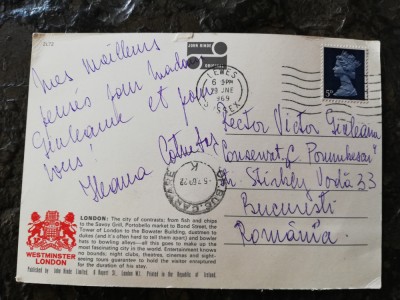 2L72
JOHN HINDE
ORIGINAL
Mes meilleurs
pensés pour Madame
Giuleanu et pour
vous!
Ileana Cotrubaș
LEWES
6 PM
29 JNE
1969
SUSSEX
5D
Lector Victor Giuleanu
Conservat. C. Porumbescu"
Str. Stirbey Vodă 33
București
România
BUCUREȘTI
K
WESTMINSTER
LONDON
LONDON: The city of contrasts: from fish and chips
to the Savoy Grill, Portobello market to Bond Street, the
Tower of London to the Bowater Building, duchess to
dukes (and it's often hard to tell them apart) and bowler
hats in bowling alleys — all this goes to make up the
most fascinating city in the world. Entertainment knows
no bounds: night clubs, theatres, cinemas and sight-
seeing tours guarantee to hold the visitor enraptured
for the duration of his stay.
Published by John Hinde Limited, 6 Bourne St., London W1. Printed in the Republic of Ireland.